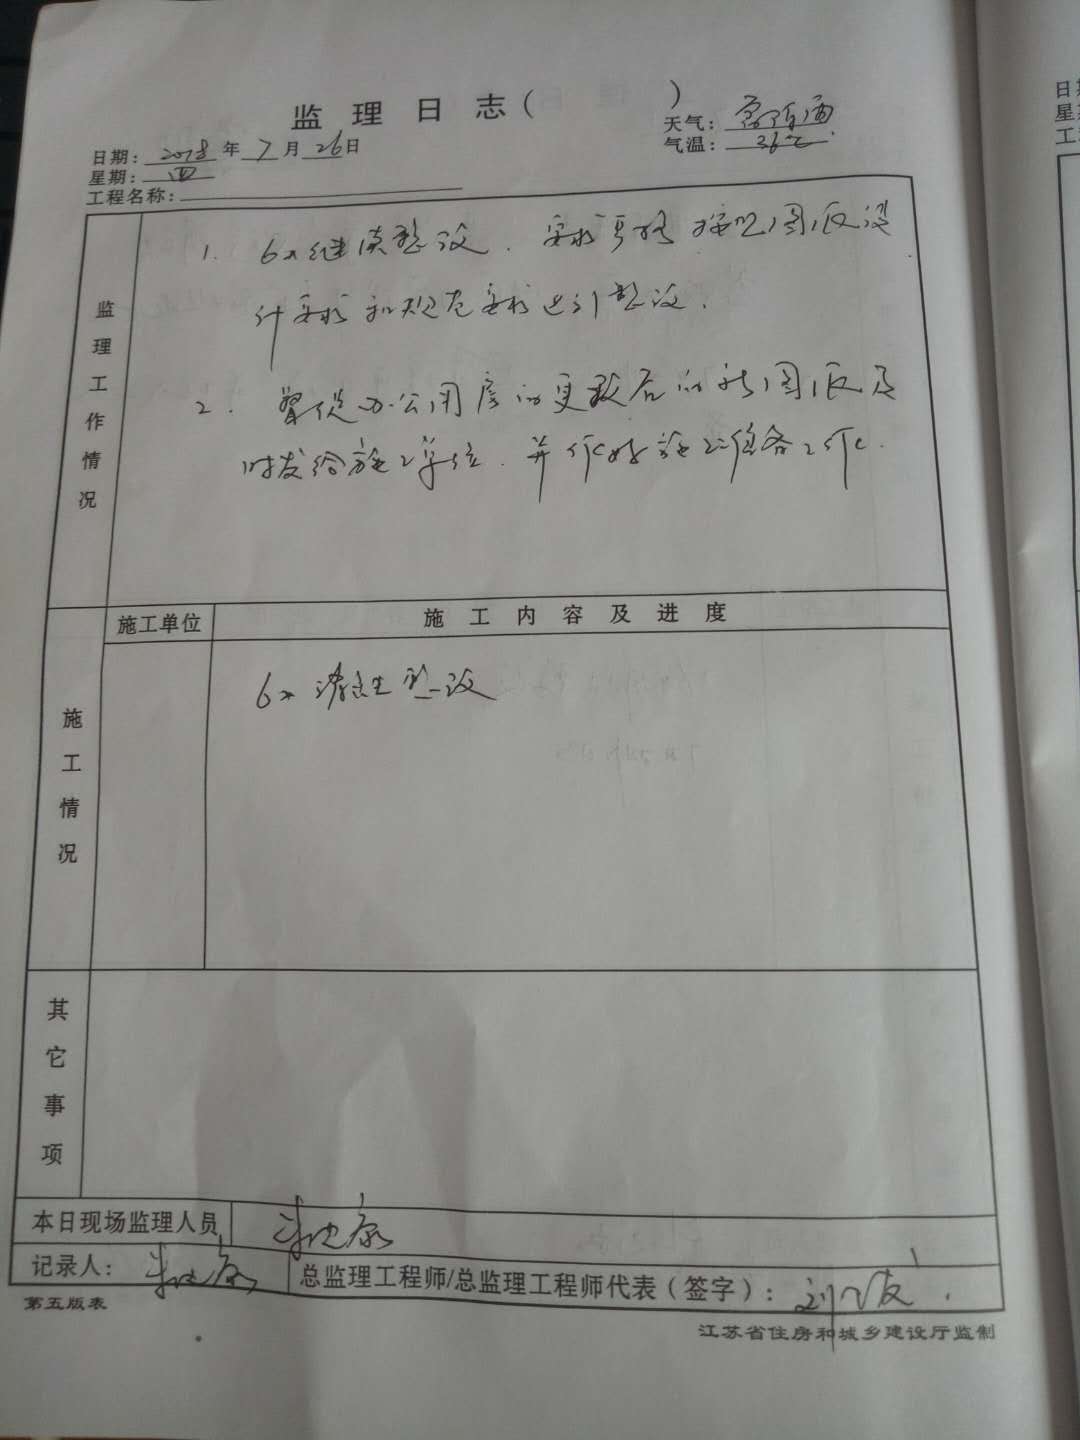 监理日志( )
日期: 2018 年 7 月 26 日
天气:
星期: 四
气温: 36℃
工程名称:
监理工作情况
1. 6# 继续整改, 要求严格按照图纸设
计要求和规范要求进行整改.
2. 督促办公用房的变更后的新图纸及
时发给施工单位, 并作好施工准备工作.
施工单位
施工内容及进度
施工情况
6# 整改
其它事项
本日现场监理人员
记录人:
总监理工程师/总监理工程师代表(签字):
第五版表
江苏省住房和城乡建设厅监制
日
星
工